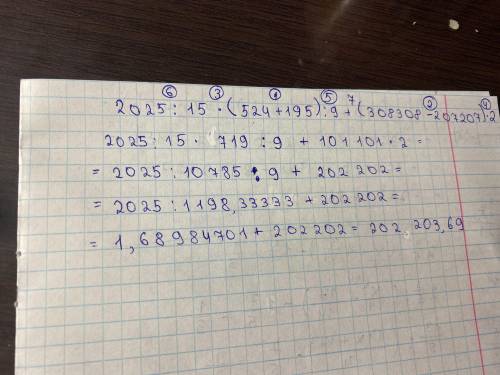 ⑥ ③ ① ⑤ 7 ② ④
2025 : 15 · (524 + 195) : 9 + (308308 - 207207) · 2
2025 : 15 · 719 : 9 + 101101 · 2 =
= 2025 : 10785 : 9 + 202202 =
= 2025 : 1198,33333 + 202202 =
= 1,68984701 + 202202 = 202,203,69